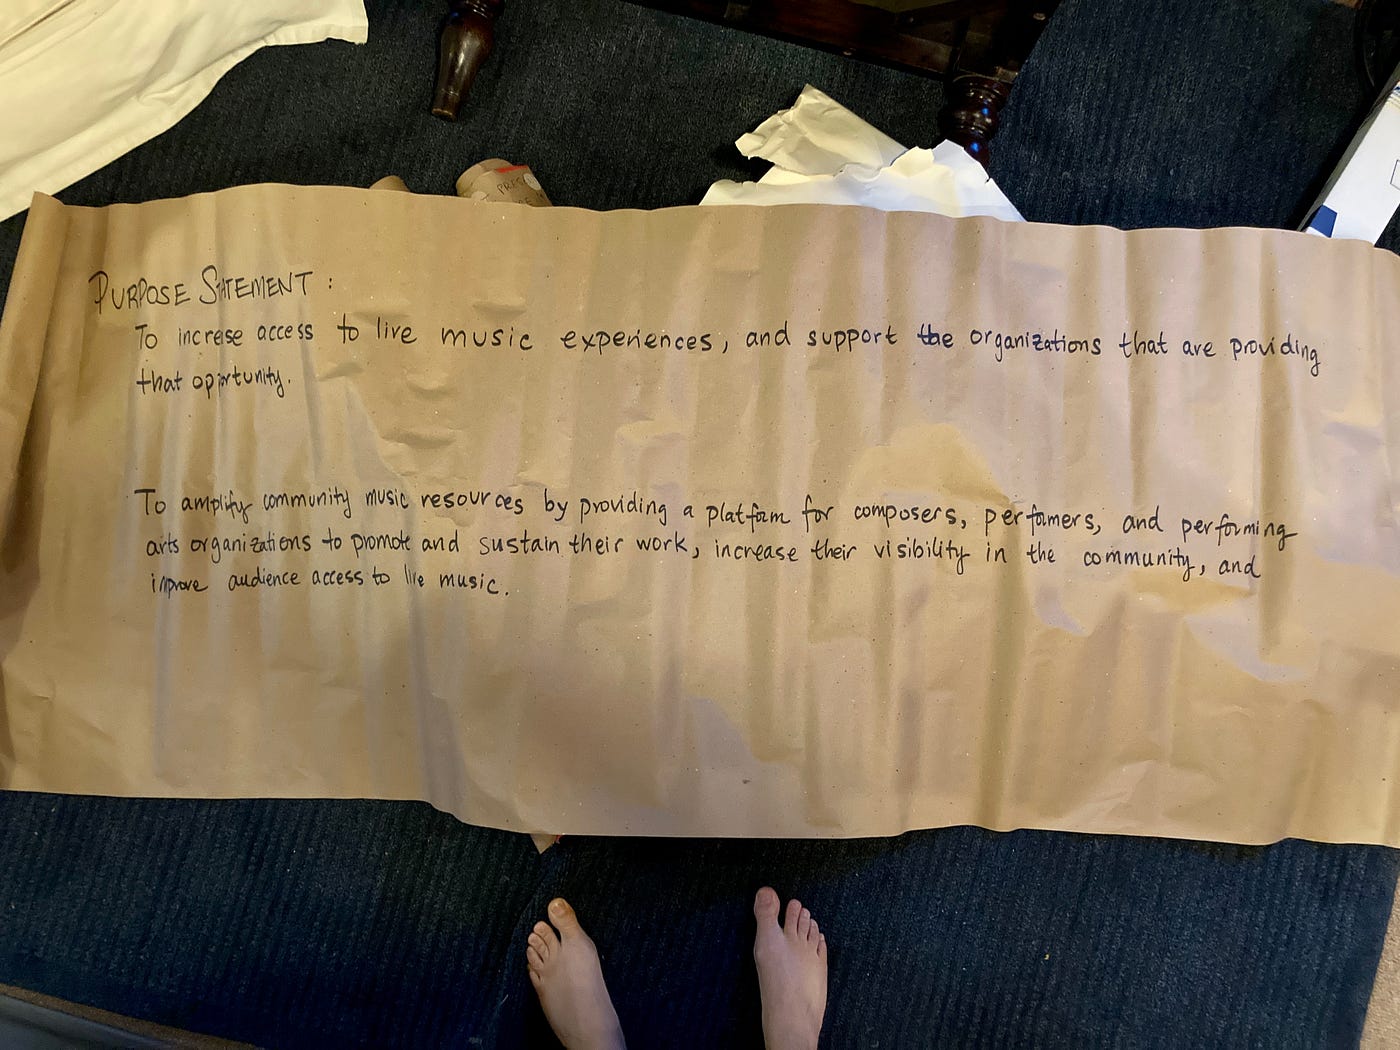 PRES
PURPOSE STATEMENT :
To increse access to live music experiences, and support the organizations that are providing
that opportunity.
To amplify community music resources by providing a platform for composers, performers, and performing
arts organizations to promote and sustain their work, increase their visibility in the community, and
improve audience access to live music.